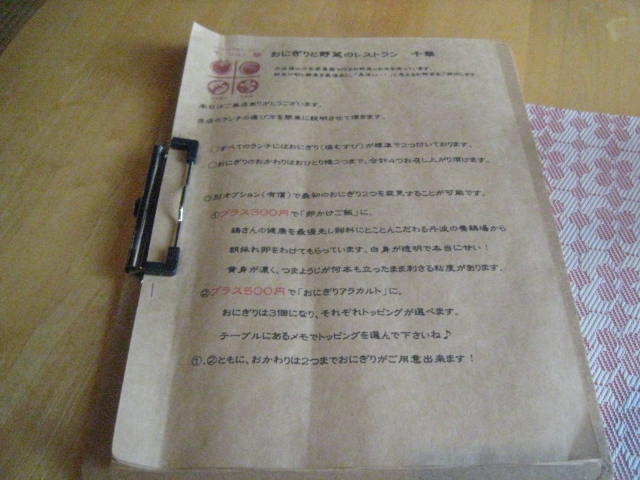 おにぎりと野菜のレストラン 千華
本日はご来店ありがとうございます。
当店のランチの選び方を簡単に説明させて頂きます。
○すべてのランチにはおにぎり(塩むすび)が標準で2つ付いております。
○おにぎりのおかわりはおひとり様2つまで、合計4つお召し上がり頂けます。
○別オプション(有償)で最初のおにぎり2つを変更することが可能です。
①プラス300円で「卵かけご飯」に。
鶏さんの健康を最優先し飼料にとことんこだわる丹波の養鶏場から
朝採れ卵をわけてもらっています。白身が透明で本当に甘い!
黄身が濃く、つまようじが何本も立ったまま刺さる粘度があります。
②プラス500円で「おにぎりアラカルト」に。
おにぎりは3個になり、それぞれトッピングが選べます。
テーブルにあるメモでトッピングを選んで下さいね♪
①.②ともに、おかわりは2つまでおにぎりがご用意出来ます!